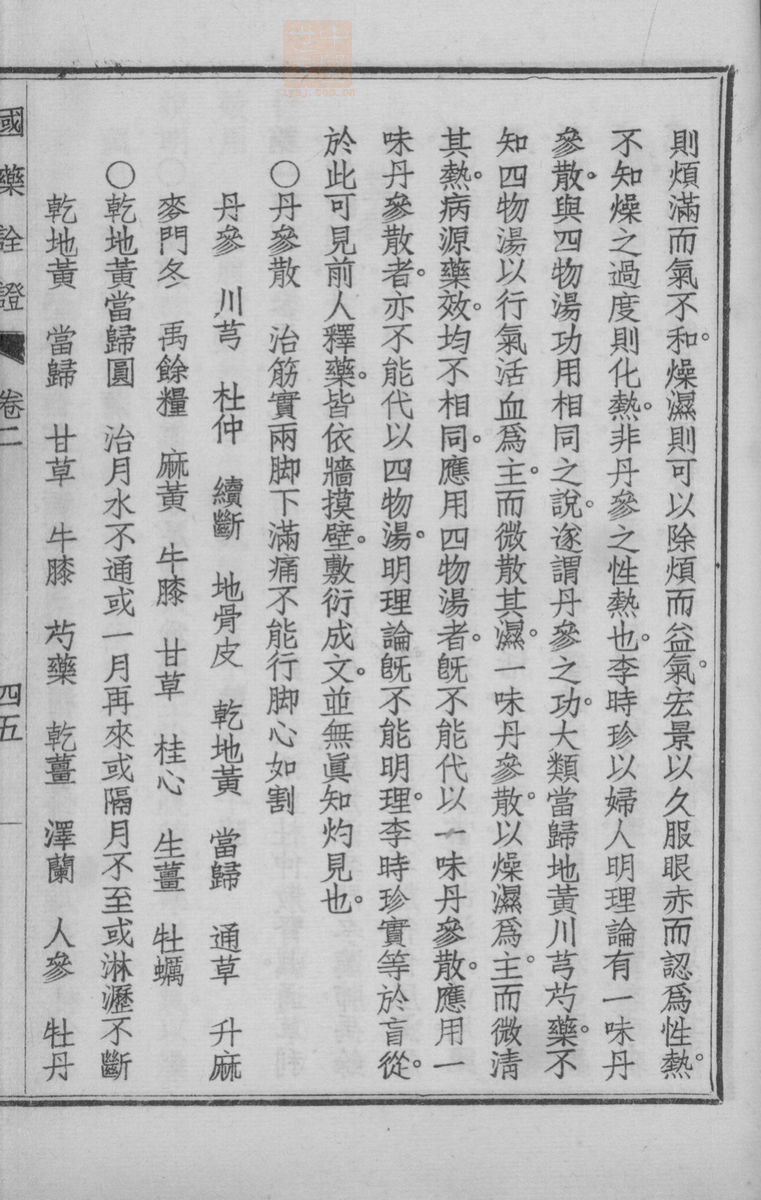 則煩滿而氣不和。燥濕則可以除煩而益氣。宏景以久服眼赤而認爲性熱。
不知燥之過度則化熱。非丹參之性熱也。李時珍以婦人明理論有一味丹
參散。與四物湯功用相同之說。遂謂丹參之功。大類當歸地黃川芎芍藥。不
知四物湯以行氣活血爲主。而微散其濕。一味丹參散。以燥濕爲主。而微清
其熱。病源藥效。均不相同。應用四物湯者。旣不能代以一味丹參散。應用一
味丹參散者。亦不能代以四物湯。明理論旣不能明理。李時珍實等於盲從。
於此可見前人釋藥。皆依牆摸壁。敷衍成文。並無眞知灼見也。
○丹參散　治筋實兩脚下滿痛不能行脚心如割
丹參　川芎　杜仲　續斷　地骨皮　乾地黃　當歸　通草　升麻
麥門冬　禹餘糧　麻黃　牛膝　甘草　桂心　生薑　牡蠣
○乾地黃當歸圓　治月水不通或一月再來或隔月不至或淋瀝不斷
乾地黃　當歸　甘草　牛膝　芍藥　乾薑　澤蘭　人參　牡丹
國藥詮證　卷二　四五